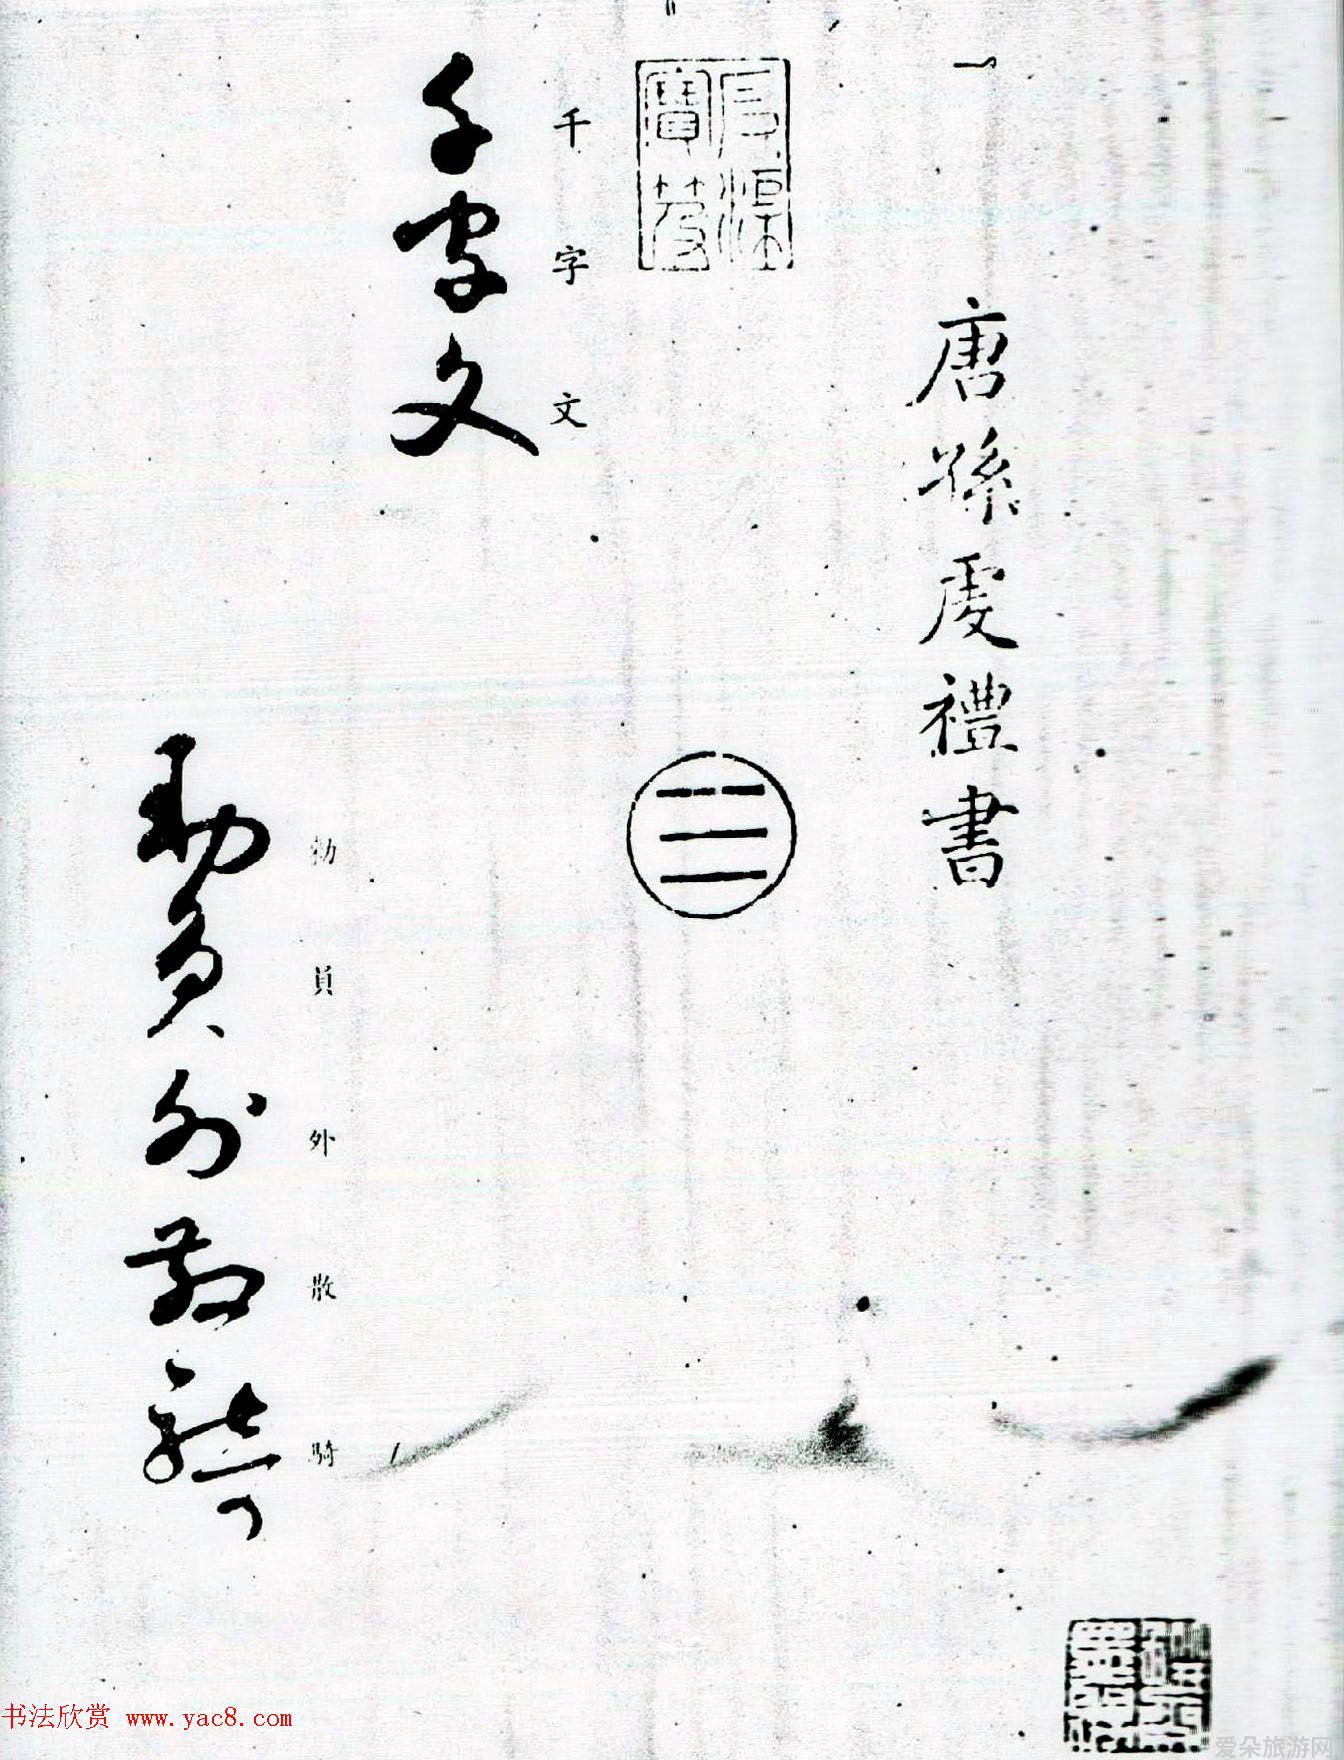 唐孫虔禮書
千字文
千字文
勅員外散騎
勅員外散騎
书法欣赏 www.yac8.com
爱朵旅游网